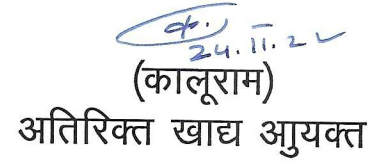 24.11.22
(कालूराम)
अतिरिक्त खाद्य आुयक्त